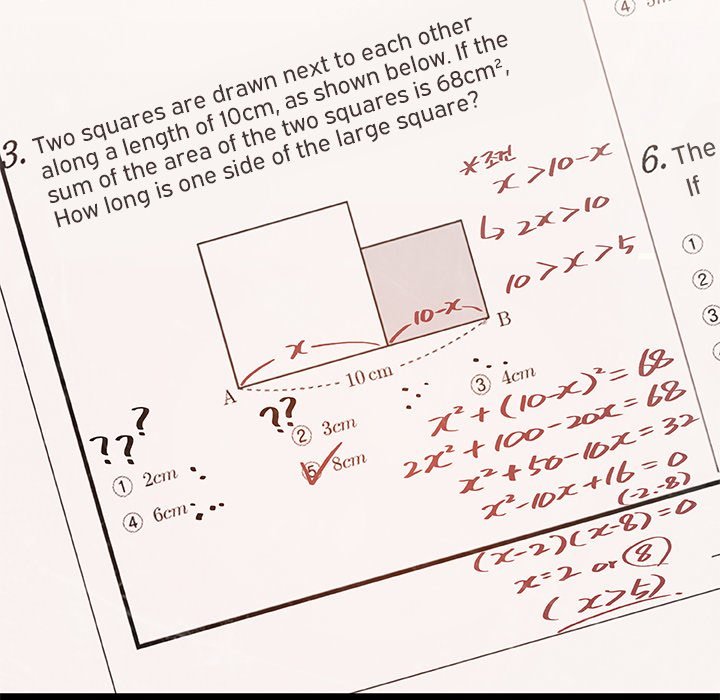 3. Two squares are drawn next to each other
along a length of 10cm, as shown below. If the
sum of the area of the two squares is 68cm²,
How long is one side of the large square?
*조건
x > 10-x
↳ 2x > 10
10 > x > 5
x
10-x
A
B
10 cm
???
??
① 2cm
② 3cm
③ 4cm
④ 6cm
⑤ 8cm
x² + (10-x)² = 68
2x² + 100 - 20x = 68
x² + 50 - 10x = 32
x² - 10x + 16 = 0
(-2.-8)
(x-2)(x-8) = 0
x = 2 or 8
(x>5).
④
6. The
If
①
②
③